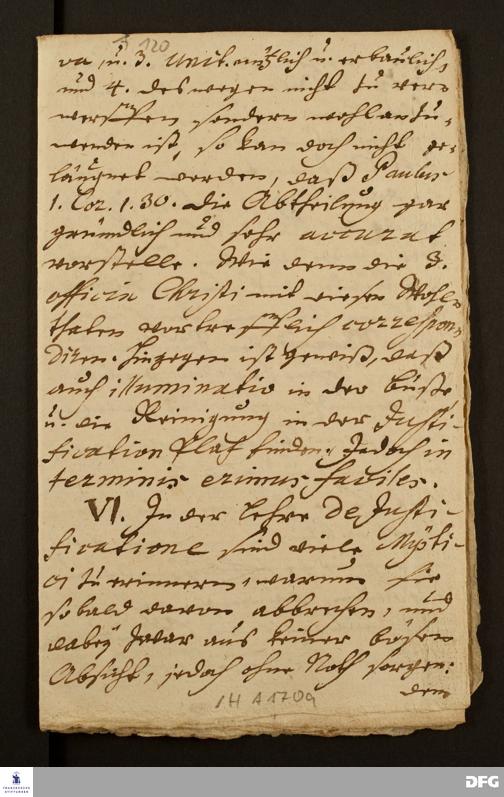 120
va, u. 3. Unit. nützlich u. erbaulich,
und 4. deswegen nicht zu ver-
werffen sondern wohl anzu-
wenden ist, so kan doch nicht ge-
läugnet werden, daß Paulus
1. Cor. 1. 30. die Abtheilung gar
gründlich und sehr accurat
vorstelle. Wie denn die 3.
officia Christi mit diesen Wohl-
thaten vortrefflich correspon-
diren. Hingegen ist gewiß, daß
auch illuminatio in der Buße
u. die Reinigung in der Justi-
fication Platz finden. Jedoch in
terminis erimus faciles.
VI. In der Lehre De Justi-
ficatione sind viele Mysti-
ci zu erinnern, warum sie
so bald davon abbrechen, und
dabey zwar aus keiner bösen
Absicht, jedoch ohne Noth sorgen:
dem
1H A 170a
FRANCKESCHE
STIFTUNGEN
DFG